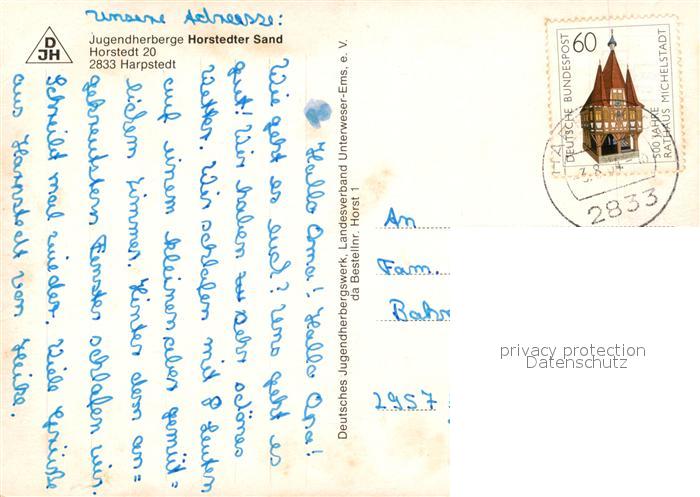 unsere Adresse:
DJH
Jugendherberge Horstedter Sand
Horstedt 20
2833 Harpstedt
Hallo Oma! Hallo Opa!
Wie geht es euch? Uns geht es
gut! Wir haben sehr schönes
Wetter. Wir schlafen mit 8 Leuten
auf einem kleinen aber gemüt=
lichem Zimmer. Hinter dem an=
gekreutstem Fenster schlafen wir.
Schreibt mal wieder. Viele Grüße
aus Harpstedt von Heike.
Deutsches Jugendherbergswerk, Landesverband Unterweser-Ems, e. V.
da Bestellnr. Horst 1
DEUTSCHE BUNDESPOST
60
500 JAHRE
RATHAUS MICHELSTADT
2833
An
Fam.
Bahn
2957
privacy protection
Datenschutz